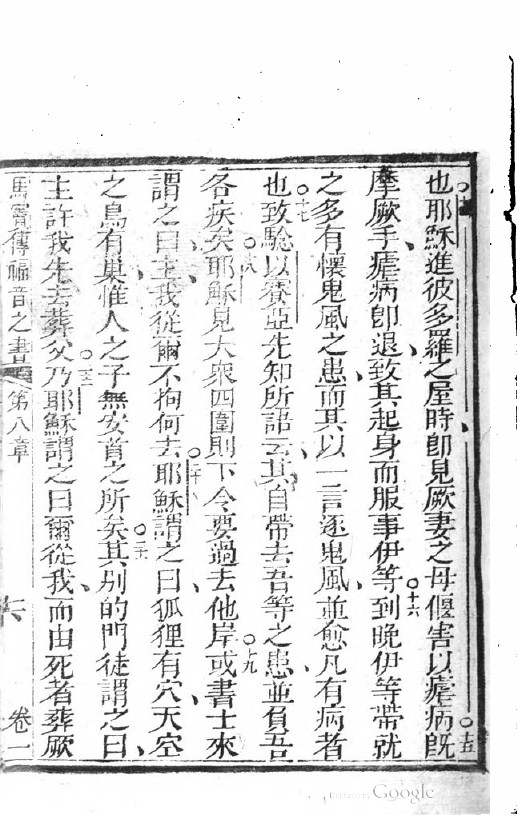 也耶穌進彼多羅之屋時卽見厥妻之母偃害以瘧病旣○十五
摩厥手瘧病卽退致其起身而服事伊等○十六到晚伊等帶就
之多有懷鬼風之患而其以一言逐鬼風並愈凡有病者
也○十七致騐以賽亞先知所語云其自帶去吾等之患並負吾
各疾矣○十八耶穌見大衆四圍則下令要過去他岸○十九或書士來
謂之曰主我從爾不拘何去○二十耶穌謂之曰狐狸有穴天空
之鳥有巢惟人之子無安首之所矣○二一其别的門徒謂之曰
主許我先去葬父○二二乃耶穌謂之曰爾從我而由死者葬厥
馬竇傳福音之書 第八章 卷一
Google